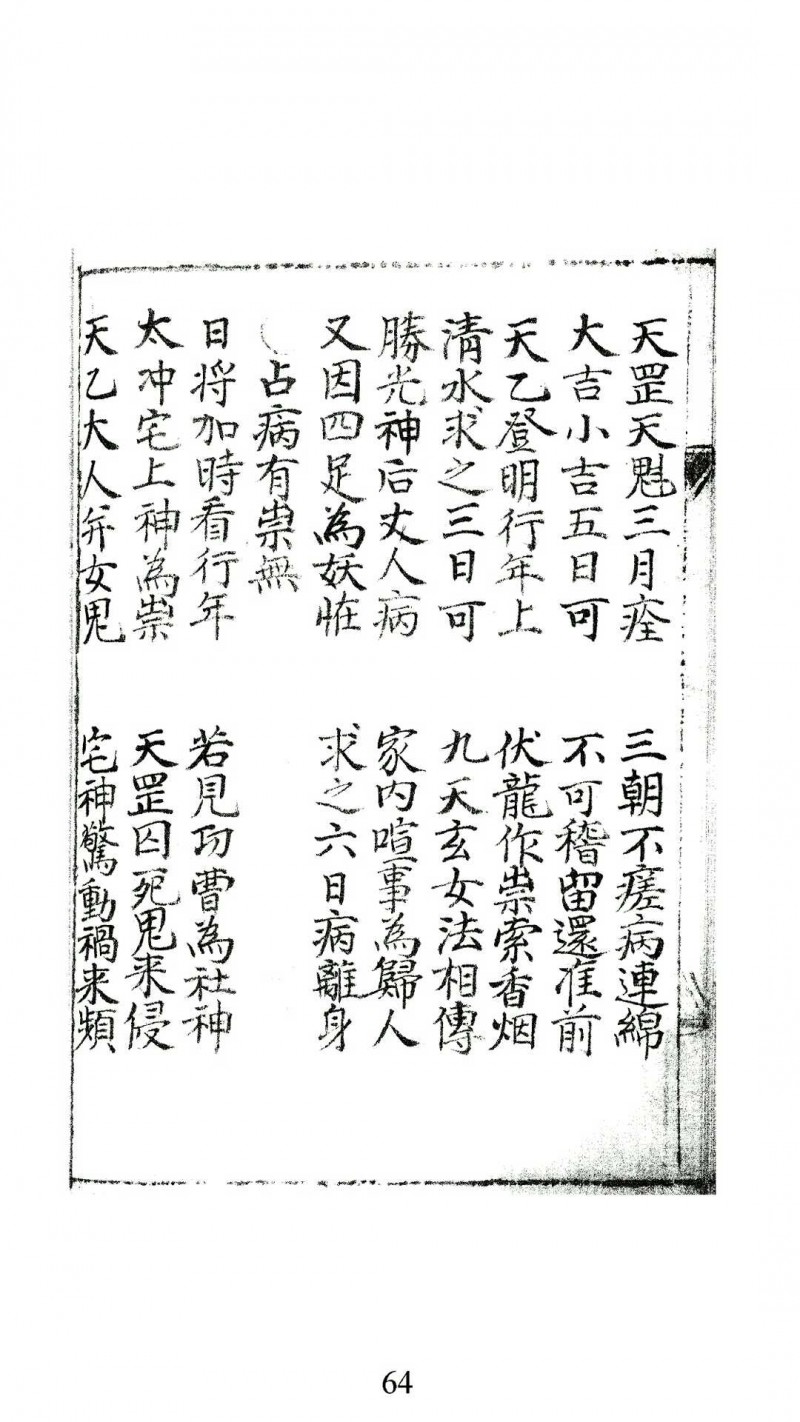 天罡天魁三月痊　三朝不瘥病連綿
大吉小吉五日可　不可稽留還准前
天乙登明行年上　伏龍作祟索香烟
清水求之三日可　九天玄女法相傳
勝光神后丈人病　家内喧事為歸人
又因四足為妖恠　求之六日病離身
占病有祟無
日将加時看行年　若見功曹為社神
太冲宅上神為祟　天罡囚死鬼来侵
天乙大人并女鬼　宅神驚動禍来頻
64